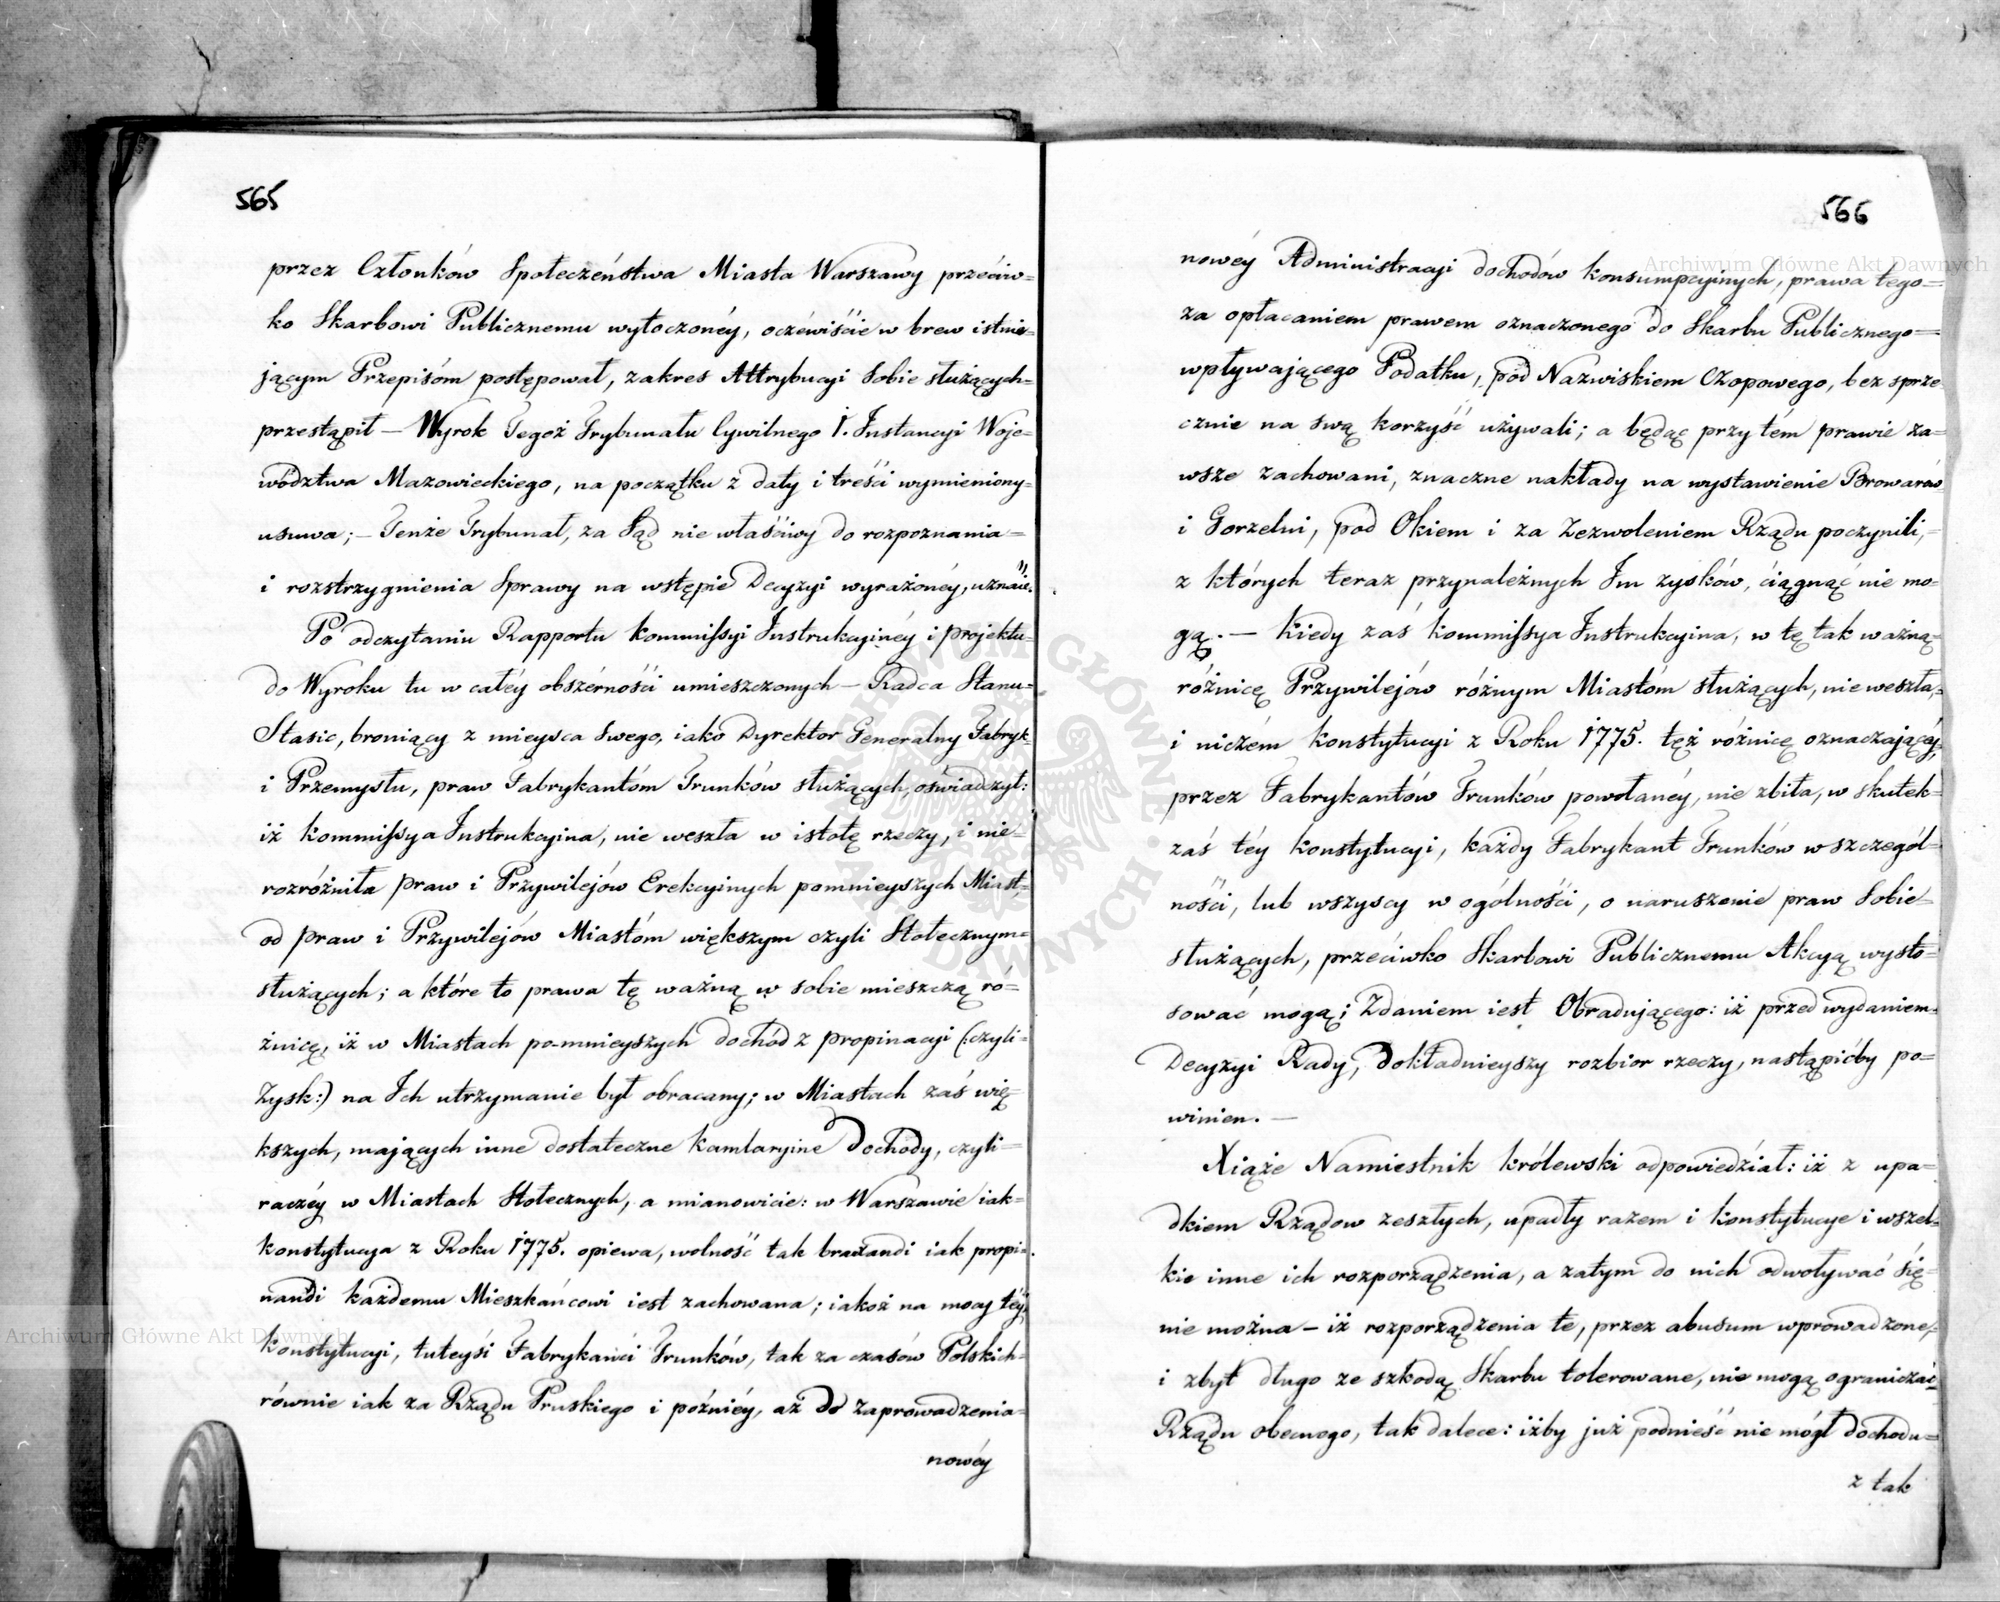 565
przez Członków Społeczeństwa Miasta Warszawy przeciw=
ko Skarbowi Publicznemu wytoczonéy, oczéwiście w brew istnie=
jącym Przepisóm postępował, zakres Attrybucyi Sobie służących=
przestąpił — Wyrok Tegoż Trybunału Cywilnego I. Instancyi Woje=
wództwa Mazowieckiego, na początku z daty i treści wymieniony=
usuwa; — Tenże Trybunał, za Sąd nie właściwy do rozpoznania=
i rozstrzygnienia Sprawy na wstępie Decyzyi wyrażonéy, uznaie."
Po odczytaniu Rapportu Kommissyi Instrukcyinéy i projektu=
do Wyroku tu w całéy obszérności umieszczonych — Radca Stanu=
Stasic, broniący z mieysca Swego, iako Dyrektor Generalny Fabryk=
i Przemysłu, praw Fabrykantóm Trunków służących, oświadczył:
iż Kommissya Instrukcyina, nie weszła w istotę rzeczy, i nie=
rozróżniła praw i Przywilejów Erekcyinych pomnieyszych Miast,
od praw i Przywilejów Miastóm większym czyli Stołecznym=
służących; a które to prawa tę ważną w sobie mieszczą ró=
żnicę, iż w Miastach po-mnieyszych dochód z propinacyi (:czyli=
Zysk:) na Ich utrzymanie był obracany; w Miastach zaś wię
kszych, mających inne dostateczne Kamlaryine dochody, czyli=
raczéy w Miastach Stołecznych, a mianowicie: w Warszawie iak=
Konstytucya z Roku 1775. opiewa, wolność tak braxandi iak propi=
nandi każdemu Mieszkańcowi iest zachowana; iakoż na mocy téy
Konstytucyi, tuteyśi Fabrykańci Trunków, tak za czasów Polskich=
równie iak za Rządu Pruskiego i poźniéy, aż do zaprowadzenia=
nowéy
566
nowéy Administracyi dochodów konsumpcyinych, prawa tego=
za opłacaniem prawem oznaczonego do Skarbu Publicznego=
wpływającego Podatku, pod Nazwiskiem Czopowego, bez sprze
cznie na swą korzyść używali; a będąc przy tém prawie za=
wsze zachowani, znaczne nakłady na wystawienie Browarów
i Gorzelni, pod Okiem i za Zezwoleniem Rządu poczynili,=
z których teraz przynależnych Im zysków, ciągnąć nie mo=
gą. — Kiedy zaś Kommissya Instrukcyina, w tę tak ważną=
różnicę Przywilejów różnym Miastóm służących, nie weszła,=
i niczém Konstytucyi z Roku 1775. tęż różnicę oznaczającéy,
przez Fabrykantów Trunków powołanéy, nie zbiła, w skutek=
zaś téy Konstytucyi, każdy Fabrykant Trunków w szczegól=
ności, lub wszyscy w ogólności, o naruszenie praw Sobie=
służących, przeciwko Skarbowi Publicznemu Akcyą wysto=
sować mogą; Zdaniem iest Obradującego: iż przed wydaniem=
Decyzyi Rady, dokładnieyszy rozbior rzeczy, nastąpićby po=
winien. —
Xiąże Namiestnik Królewski odpowiedział: iż z upa=
dkiem Rządow zeszłych, upadły razem i Konstytucye i wszel=
kie inne ich rozporządzenia, a zatym do nich odwoływać się=
nie można — iż rozporządzenia te, przez abusum wprowadzone,=
i zbyt długo ze szkodą Skarbu tolerowane, nie mogą ograniczać=
Rządu obecnego, tak dalece: iżby już podnieść nie mógł dochodu=
z tak
Archiwum Główne Akt Dawnych
Archiwum Główne Akt Dawnych
ARCHIWUM GŁÓWNE AKT DAWNYCH